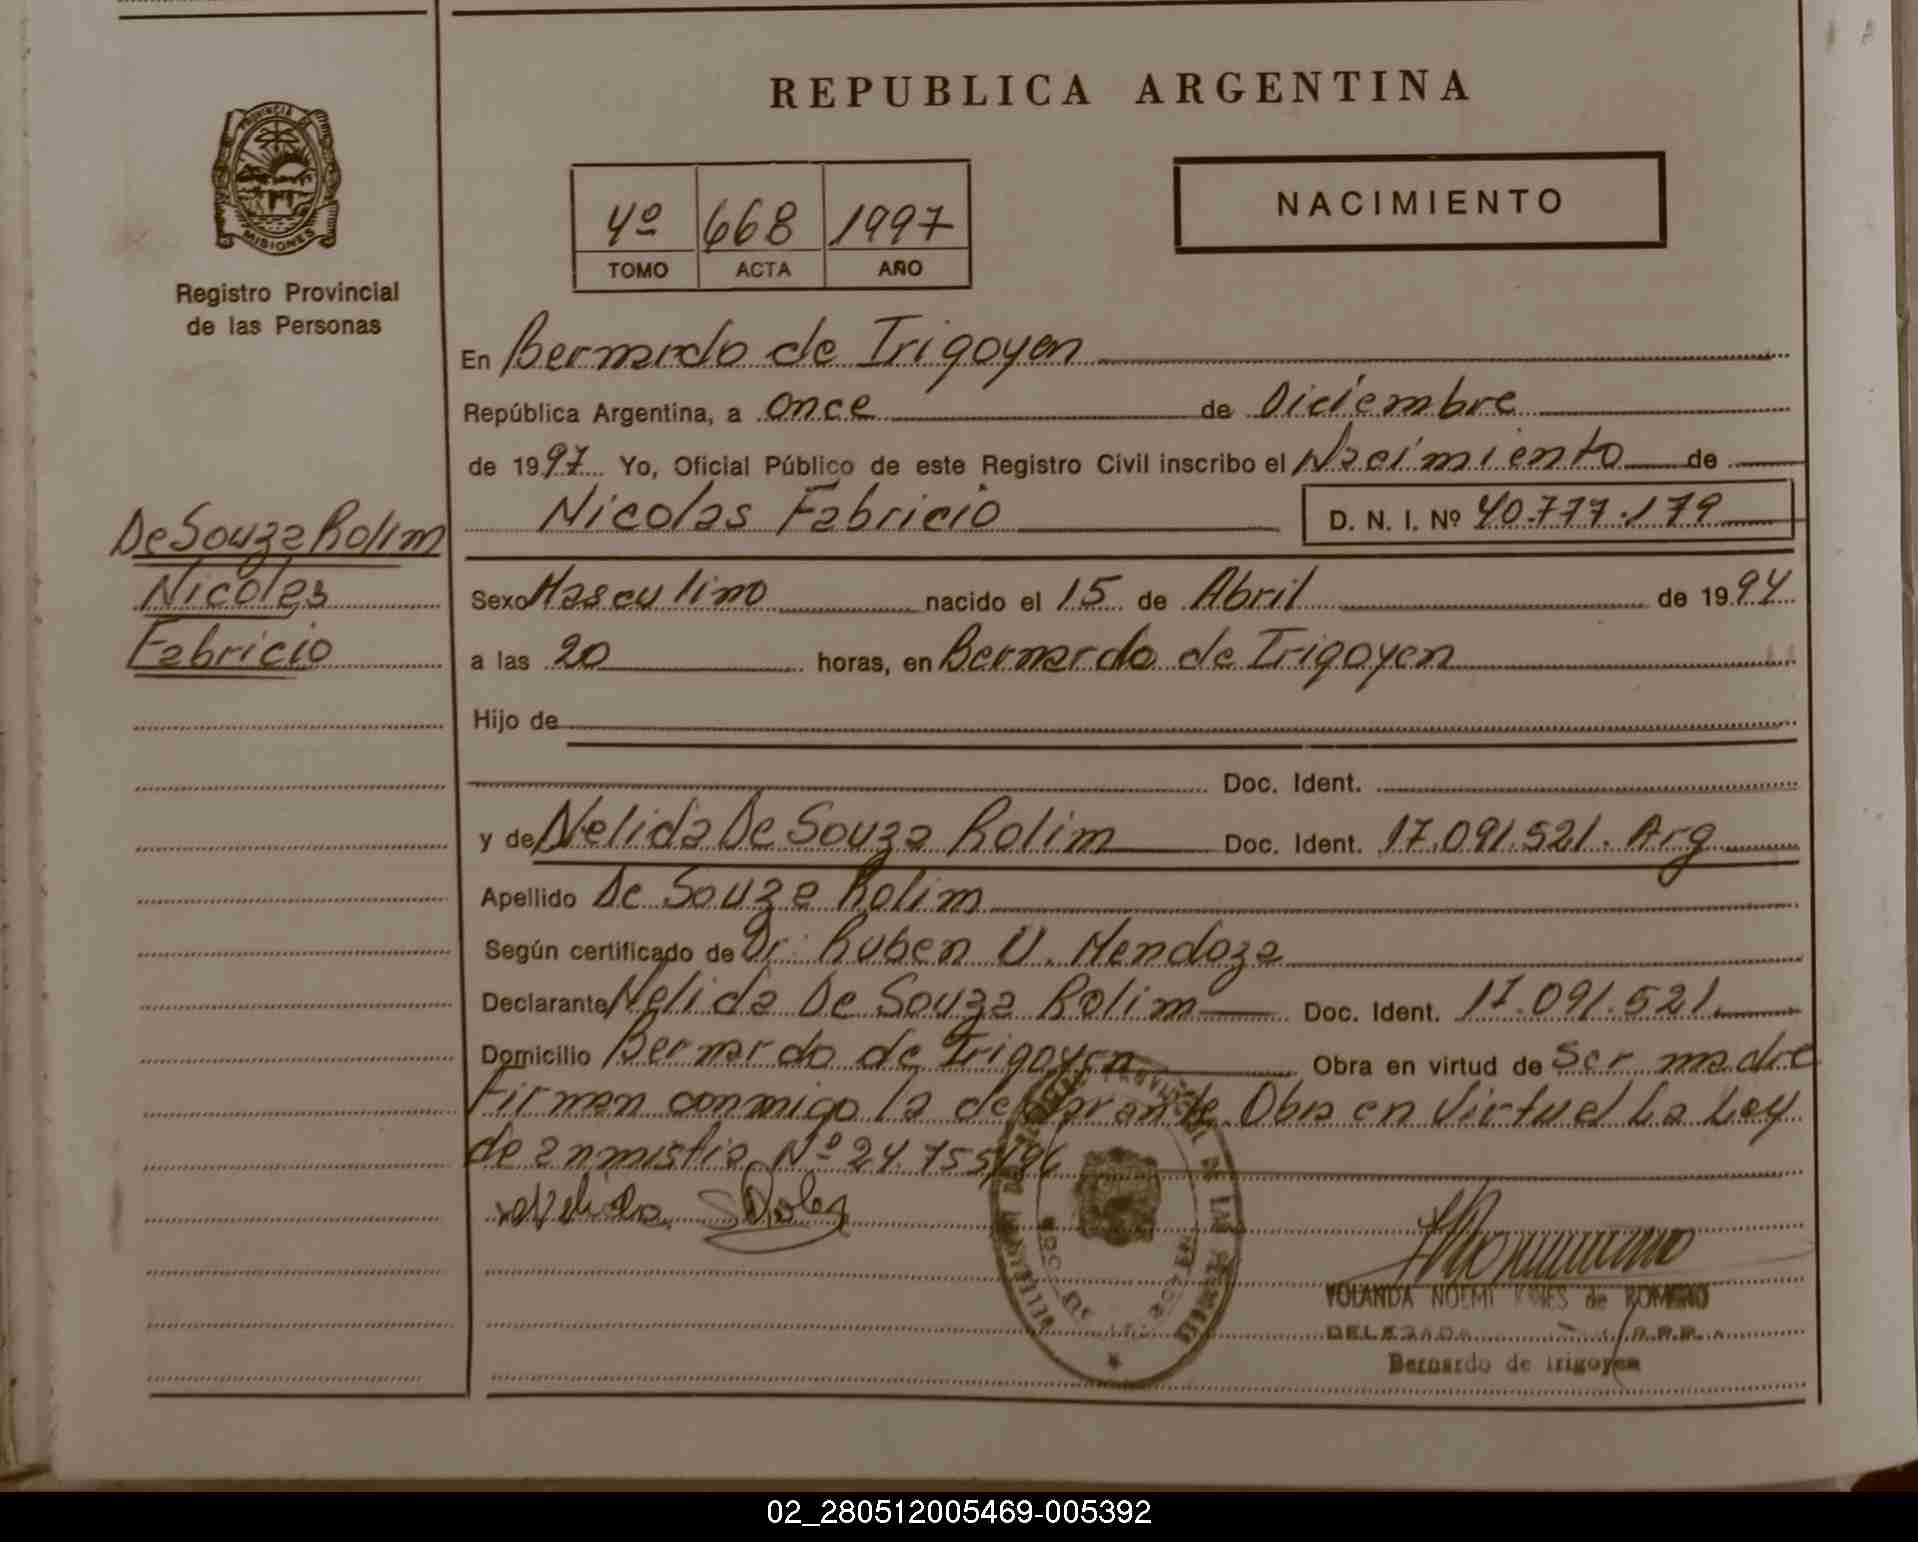 REPUBLICA ARGENTINA
PROVINCIA DE
MISIONES
Registro Provincial
de las Personas
4º 668 1997
TOMO ACTA AÑO
NACIMIENTO
De Souza Rolim
Nicolas
Fabricio
En Bernardo de Irigoyen
República Argentina, a once de Diciembre
de 1997 Yo, Oficial Público de este Registro Civil inscribo el Nacimiento de
Nicolas Fabricio D. N. I. Nº 40.777.179
Sexo Masculino nacido el 15 de Abril de 1994
a las 20 horas, en Bernardo de Irigoyen
Hijo de
Doc. Ident.
y de Nelida De Souza Rolim Doc. Ident. 17.091.521. Arg
Apellido De Souza Rolim
Según certificado de Dr. Ruben U. Mendoza
Declarante Nelida De Souza Rolim Doc. Ident. 17.091.521.
Domicilio Bernardo de Irigoyen Obra en virtud de Ser madre
Firman conmigo la declarante. Obra en Virtud La Ley
de anmistia Nº 24.755/96
Nelida
YOLANDA NOEMI de ROMERO
DELEGADA R.P.P.
Bernardo de Irigoyen
02_280512005469-005392